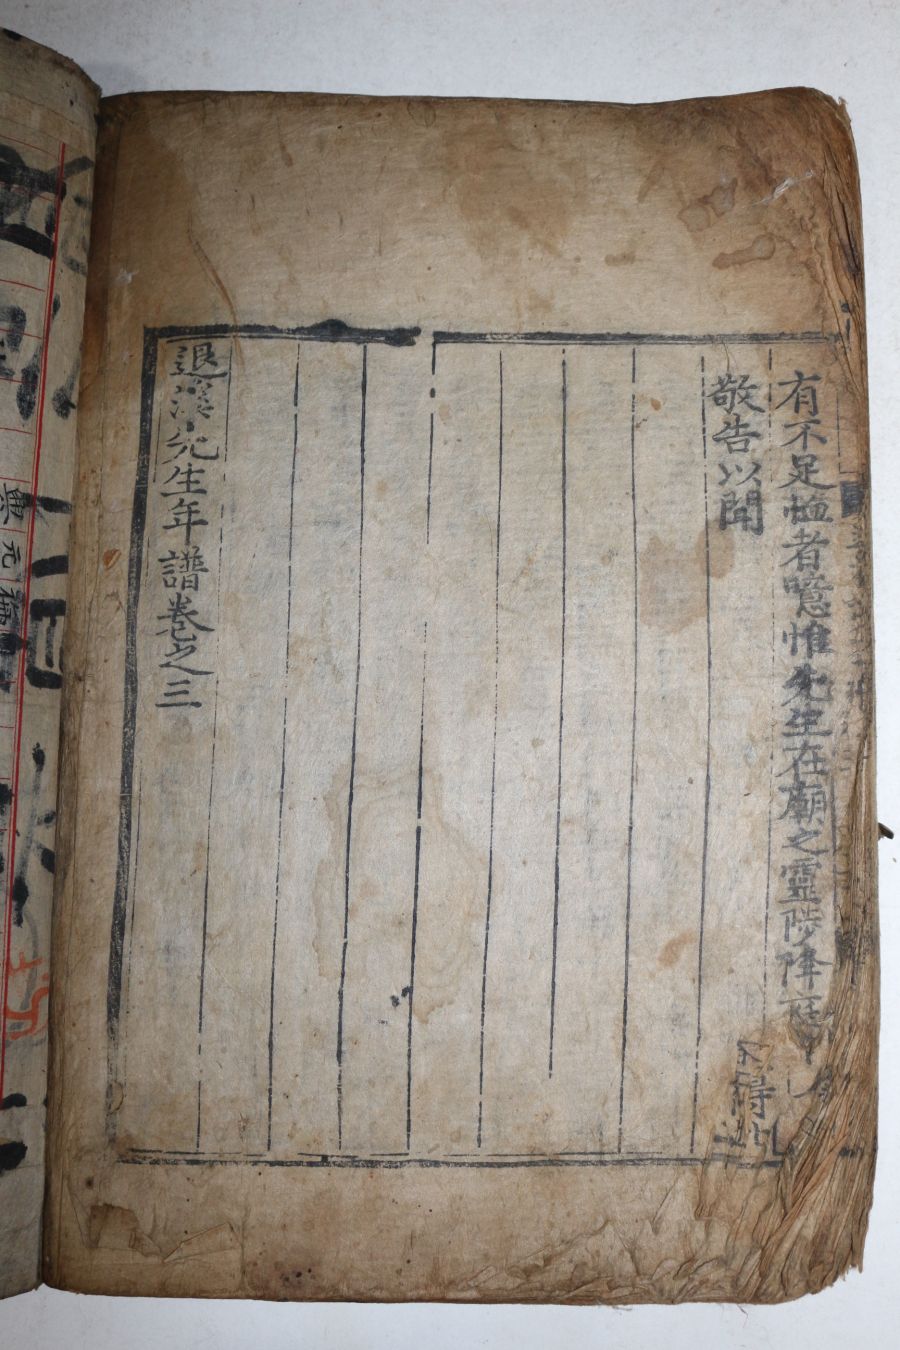 有不足恤者噫惟先生在廟之靈陟降
敬告以聞
退溪先生年譜卷之三
無元